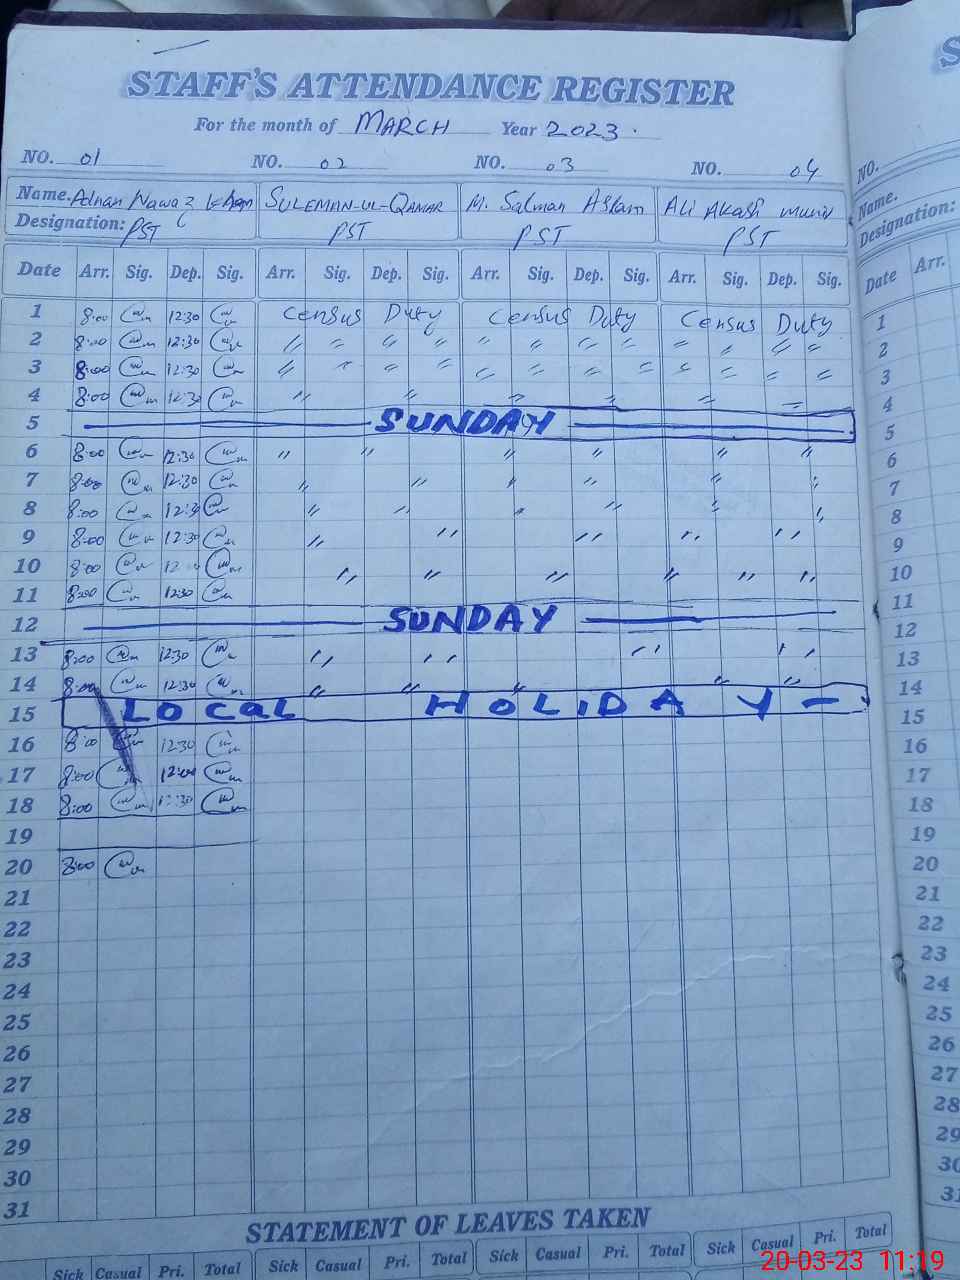 STAFF'S ATTENDANCE REGISTER
For the month of MARCH Year 2023.
NO. 01 NO. 02 NO. 03 NO. 04 NO.
Name. Adnan Nawaz SULEMAN-UL-QAMAR M. Salman Aslam Ali Akash Name.
Designation: PST PST PST PST Designation:
Date Arr. Sig. Dep. Sig. Arr. Sig. Dep. Sig. Arr. Sig. Dep. Sig. Arr. Sig. Dep. Sig. Date Arr.
1 8:00 12:30 Census Duty Census Duty Census Duty 1
2 8:00 12:30 〃 〃 〃 〃 〃 〃 〃 〃 〃 〃 〃 〃 2
3 8:00 12:30 〃 〃 〃 〃 〃 〃 〃 〃 〃 〃 〃 〃 3
4 8:00 12:30 〃 〃 〃 〃 〃 〃 4
5 SUNDAY 5
6 8:00 12:30 〃 〃 〃 〃 〃 〃 6
7 8:00 12:30 〃 〃 〃 〃 〃 〃 7
8 8:00 12:30 〃 〃 〃 〃 〃 〃 8
9 8:00 12:30 〃 〃 〃 〃 〃 9
10 8:00 〃 〃 〃 〃 〃 〃 10
11 8:00 12:30 11
12 SUNDAY 12
13 8:00 12:30 〃 〃 〃 〃 13
14 8:00 12:30 〃 〃 〃 〃 〃 14
15 LOCAL HOLIDAY - 15
16 8:00 12:30 16
17 8:00 12:00 17
18 8:00 12:30 18
19 19
20 8:00 20
21 21
22 22
23 23
24 24
25 25
26 26
27 27
28 28
29 29
30 30
31 31
STATEMENT OF LEAVES TAKEN
Sick Casual Pri. Total Sick Casual Pri. Total Sick Casual Pri. Total Sick Casual Pri. Total
20-03-23 11:19